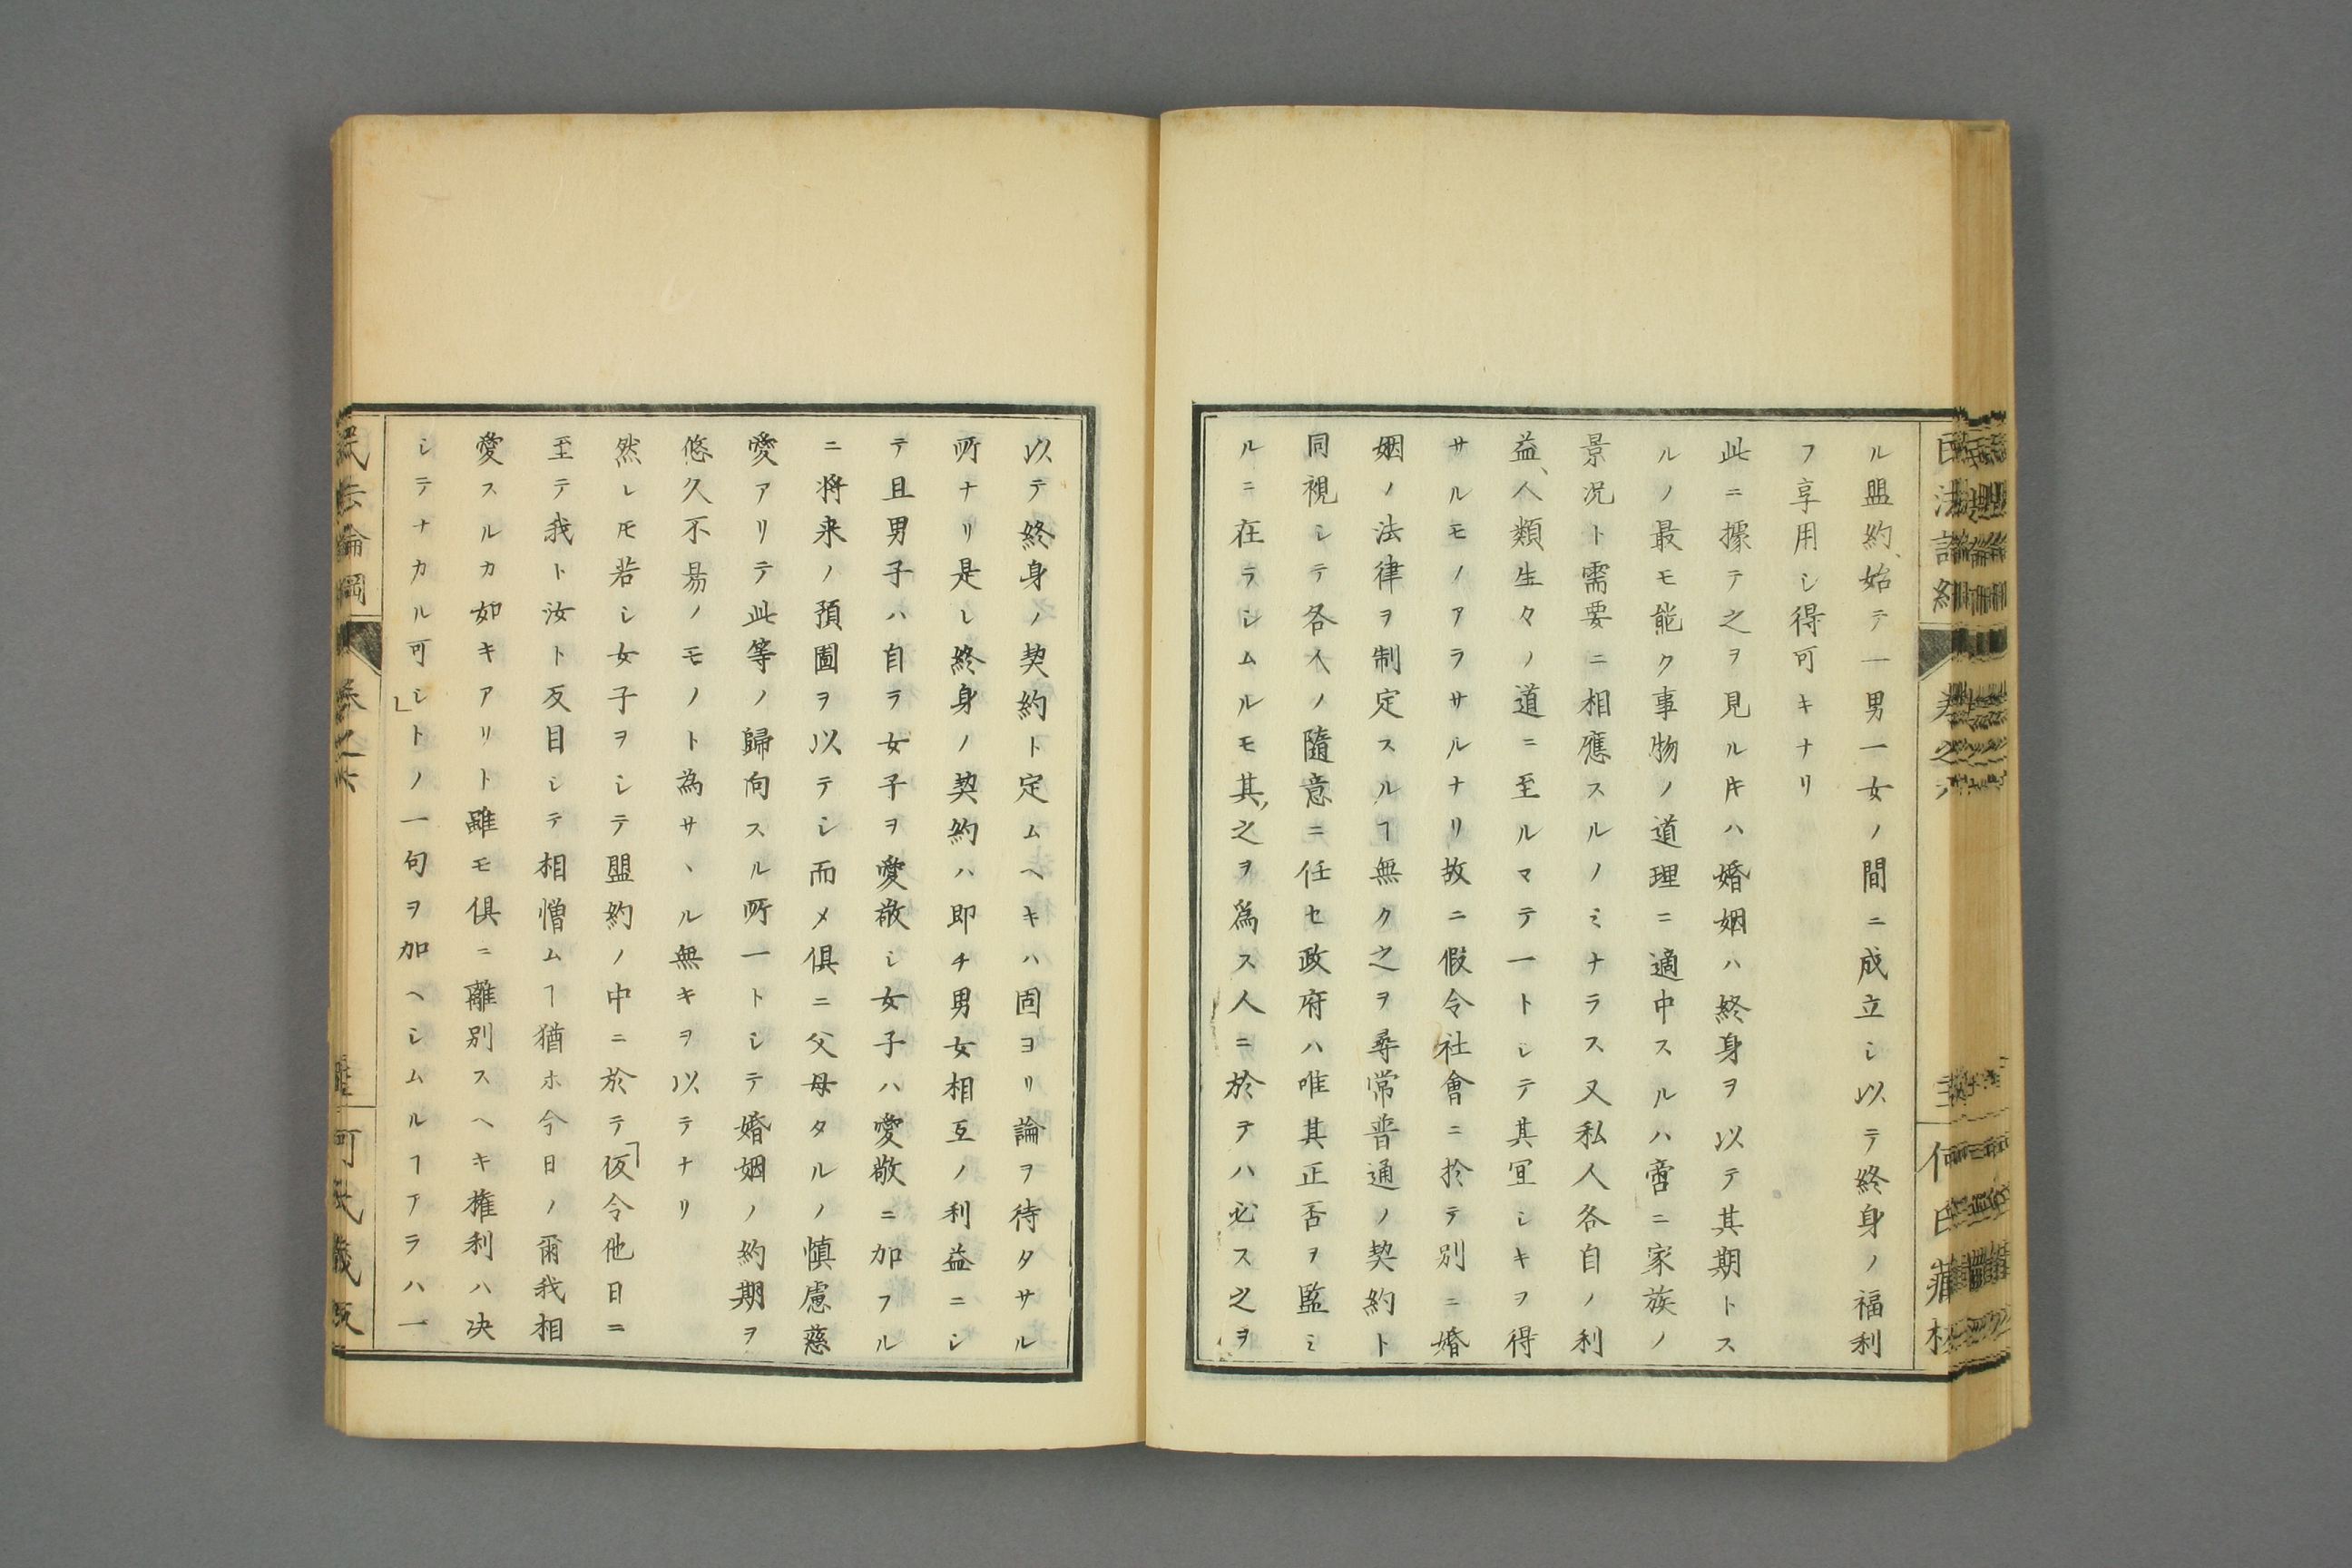 ル盟約、始テ一男一女ノ間ニ成立シ以テ終身ノ福利
フ享用シ得可キナリ
此ニ據テ之ヲ見ル𪜈ハ婚姻ハ終身ヲ以テ其期トス
ルノ最モ能ク事物ノ道理ニ適中スルハ啻ニ家族ノ
景況ト需要ニ相應スルノミナラス又私人各自ノ利
益、人類生々ノ道ニ至ルマテ一トシテ其宜シキヲ得
サルモノアラサルナリ故ニ假令社會ニ於テ別ニ婚
姻ノ法律ヲ制定スルヿ無ク之ヲ尋常普通ノ契約ト
同視シテ各人ノ隨意ニ任セ政府ハ唯其正否ヲ監ミ
ルニ在ラシムルモ其、之ヲ爲ス人ニ於テハ必ス之ヲ
以テ終身ノ契約ト定ムヘキハ固ヨリ論ヲ待タサル
所ナリ是レ終身ノ契約ハ即チ男女相互ノ利益ニシ
テ且男子ハ自ラ女子ヲ愛敬シ女子ハ愛敬ニ加フル
ニ将来ノ預圖ヲ以テシ而メ俱ニ父母タルノ慎慮慈
愛アリテ此等ノ歸向スル所一トシテ婚姻ノ約期ヲ
悠久不易ノモノト為サヽル無キヲ以テナリ
然レ𪜈若シ女子ヲシテ盟約ノ中ニ於テ「仮令他日ニ
至テ我ト汝ト反目シテ相憎ムヿ猶ホ今日ノ爾我相
愛スルカ如キアリト雖モ俱ニ離別スヘキ権利ハ决
シテナカル可シ」トノ一句ヲ加ヘシムルヿアラハ一
民法論綱 巻之六